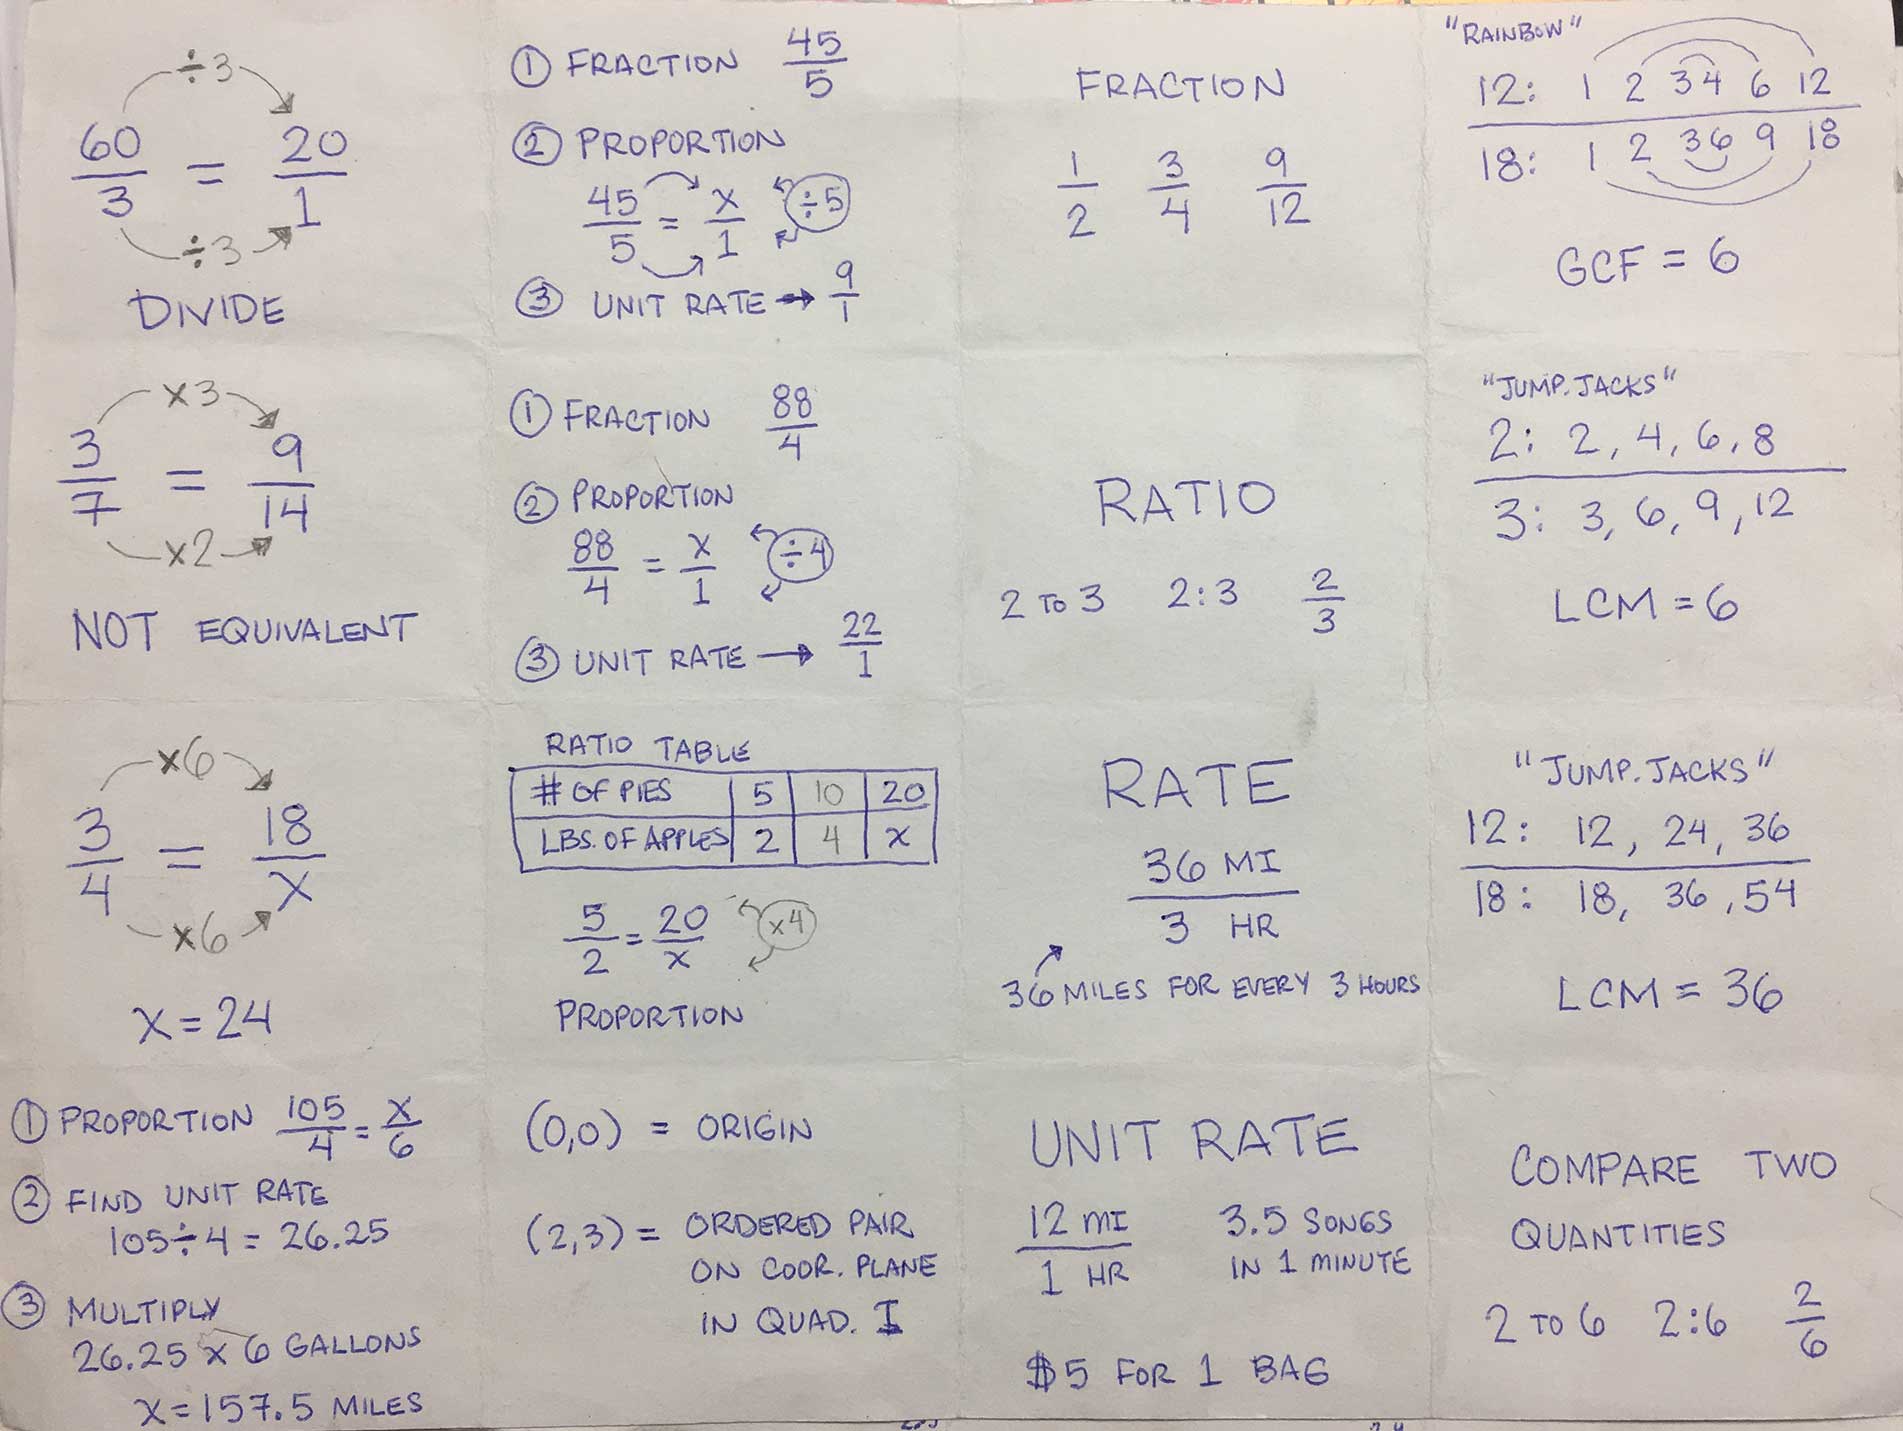 ÷3
60/3 = 20/1
÷3
DIVIDE
① FRACTION 45/5
② PROPORTION
45/5 = x/1 ÷5
③ UNIT RATE → 9/1
FRACTION
1/2 3/4 9/12
"RAINBOW"
12: 1 2 3 4 6 12
18: 1 2 3 6 9 18
GCF = 6
×3
3/7 = 9/14
×2
NOT EQUIVALENT
① FRACTION 88/4
② PROPORTION
88/4 = x/1 ÷4
③ UNIT RATE → 22/1
RATIO
2 TO 3 2:3 2/3
"JUMP. JACKS"
2: 2, 4, 6, 8
3: 3, 6, 9, 12
LCM = 6
×6
3/4 = 18/x
×6
x = 24
RATIO TABLE
# OF PIES 5 10 20
LBS. OF APPLES 2 4 x
5/2 = 20/x ×4
PROPORTION
RATE
36 MI
3 HR
36 MILES FOR EVERY 3 HOURS
"JUMP. JACKS"
12: 12, 24, 36
18: 18, 36, 54
LCM = 36
① PROPORTION 105/4 = x/6
② FIND UNIT RATE
105 ÷ 4 = 26.25
③ MULTIPLY
26.25 x 6 GALLONS
x = 157.5 MILES
(0,0) = ORIGIN
(2,3) = ORDERED PAIR
ON COOR. PLANE
IN QUAD. I
UNIT RATE
12 MI
1 HR
3.5 SONGS
IN 1 MINUTE
$5 FOR 1 BAG
COMPARE TWO
QUANTITIES
2 TO 6 2:6 2/6